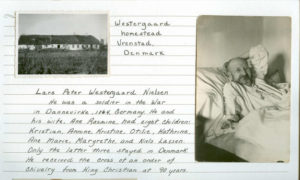 Westergaard
homestead
Vrensted,
Denmark
Lars Peter Westergaard Nielsen
He was a soldier in the War
in Dannevirke, 1864, Germany. He and
his wife, Ane Rasmine, had eight children:
Kristian, Amine, Kristine, Otilie, Kathrine,
Ane Marie, Margrethe, and Niels Lassen.
Only the latter three stayed in Denmark.
He received the cross of an order of
chivalry from King Christian at 90 years.